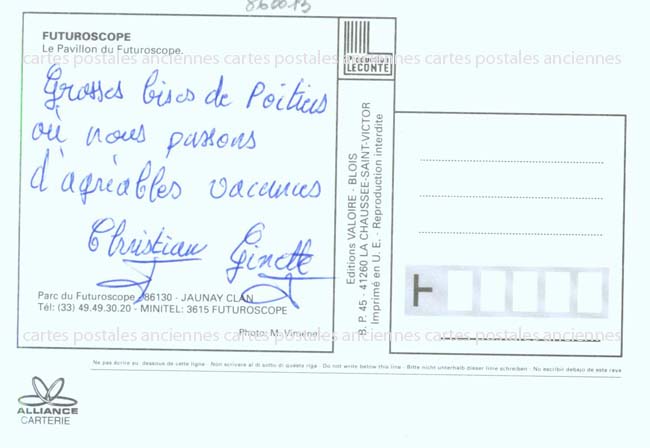 860013
FUTUROSCOPE
Le Pavillon du Futuroscope.
cartes postales anciennes cartes postales anciennes cartes postales anciennes
Grosses bises de Poitiers
où nous passons
d'agréables vacances
Christian Ginette
Parc du Futuroscope 86130 - JAUNAY CLAN
Tél: (33) 49.49.30.20 - MINITEL: 3615 FUTUROSCOPE
cartes postales anciennes cartes postales anciennes cartes postales anciennes
Photo: M. Vimenet
LECONTE
Editions VALOIRE - BLOIS
B. P. 45 - 41260 LA CHAUSSEE-SAINT-VICTOR
Imprimé en U. E. - Reproduction interdite
Ne pas écrire au dessous de cette ligne - Non scrivere al di sotto di questa riga - Do not write below this line - Bitte nicht unterhalb dieser linie schreiben - No escribir debajo de esta raya
ALLIANCE
CARTERIE